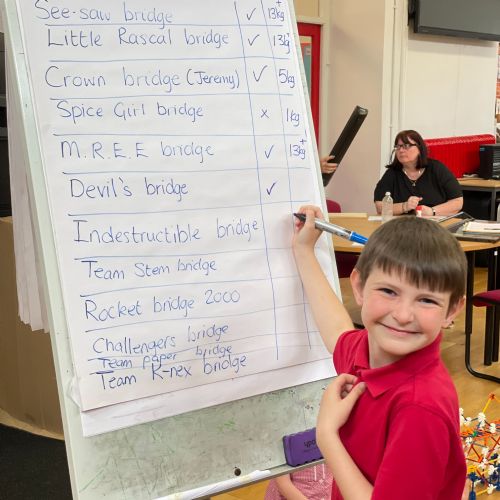 See-saw bridge ✓ 13kg+
Little Rascal bridge ✓ 13kg+
Crown bridge (Jeremy) ✓ 5kg
Spice Girl bridge x 1kg
M.R.E.E bridge ✓ 13kg+
Devil's bridge ✓
Indestructible bridge
Team Stem bridge
Rocket bridge 2000
Challengers bridge
Team paper bridge
Team K-nex bridge